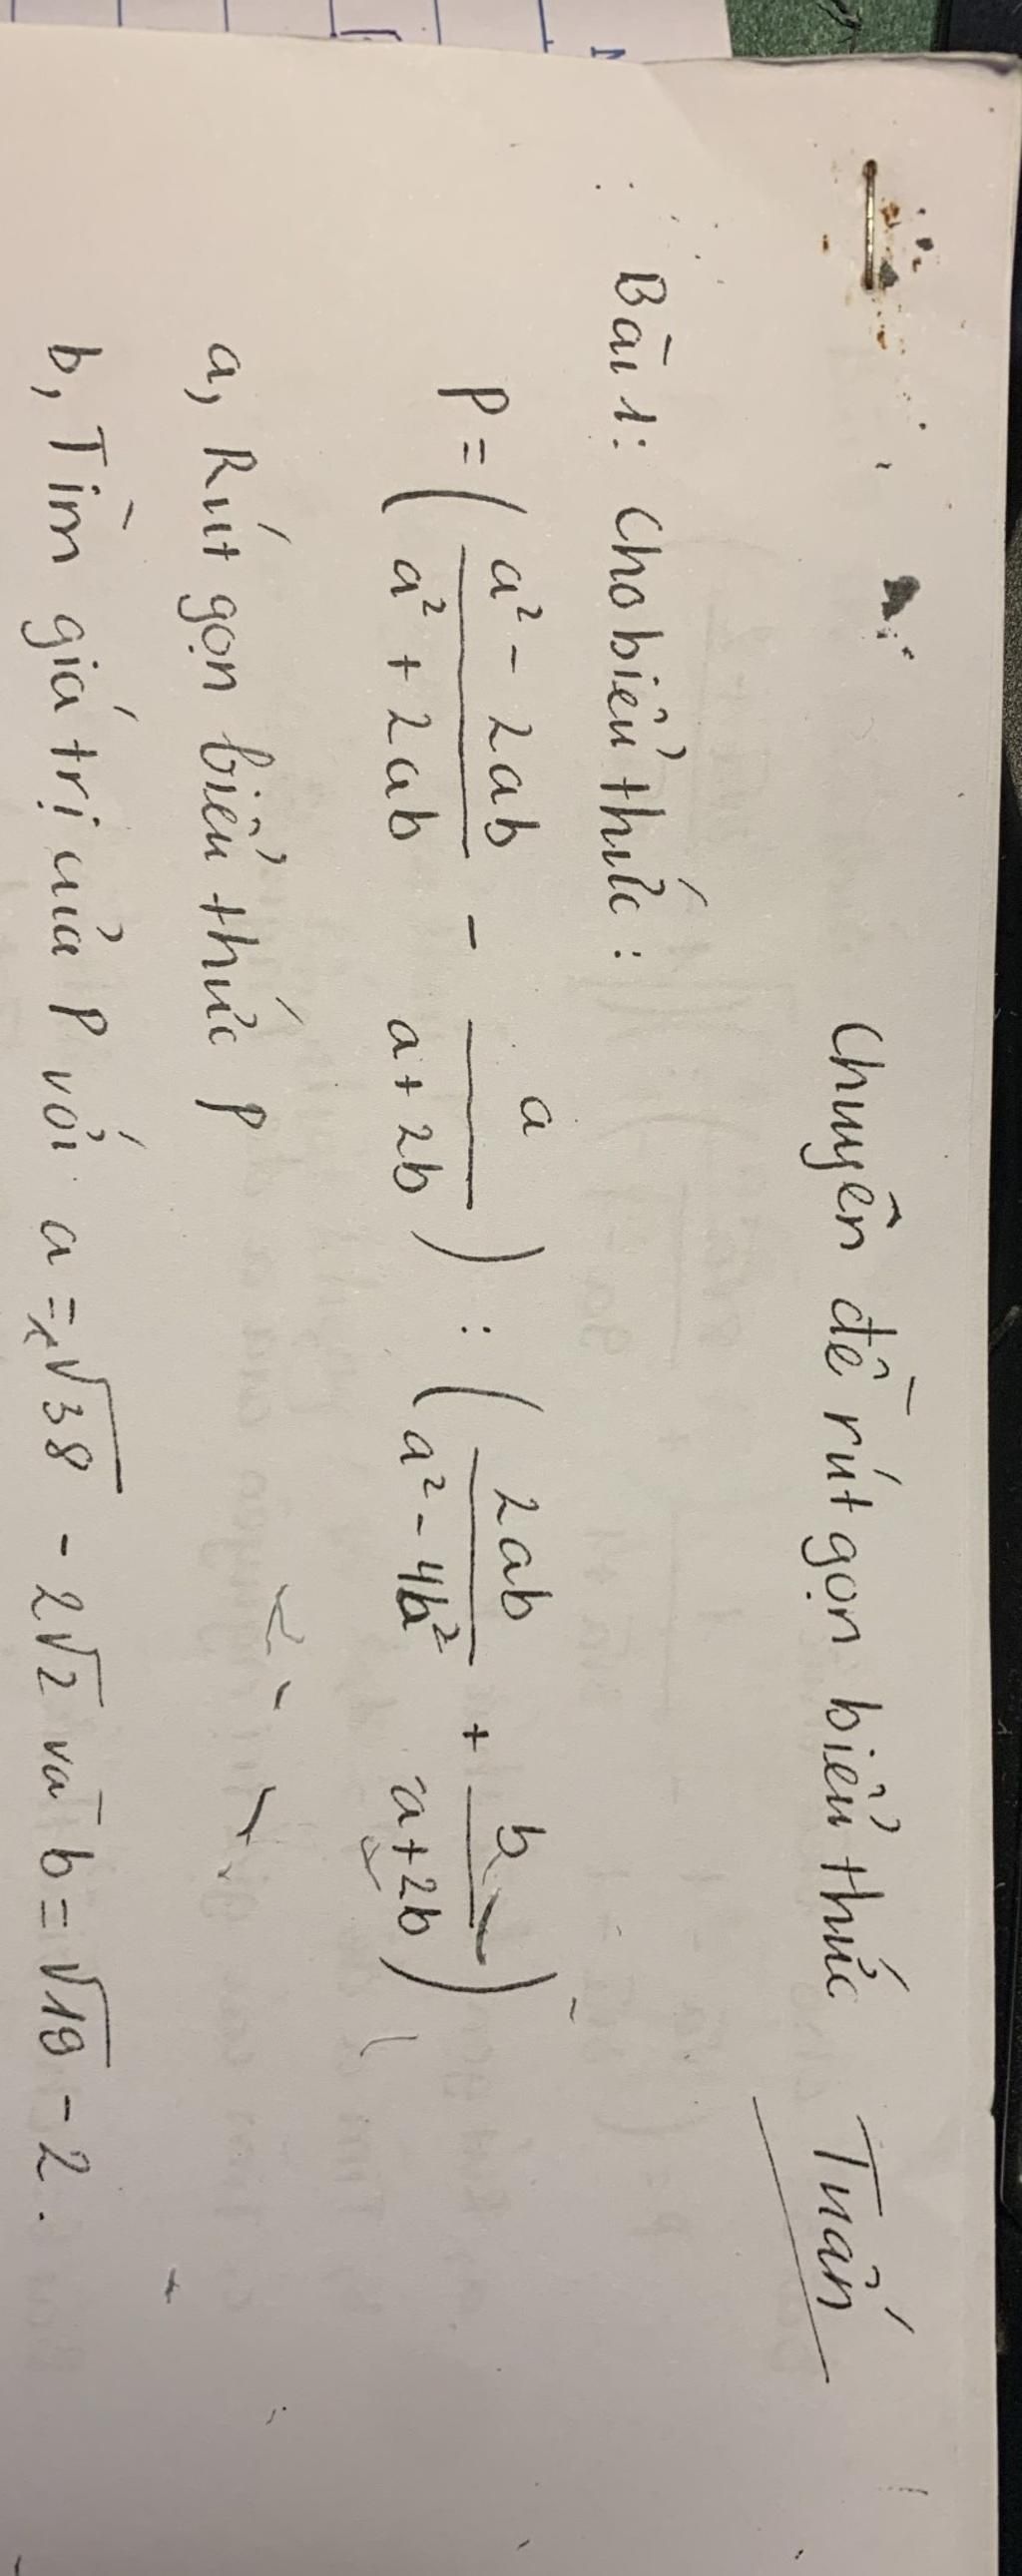 Chuyên đề rút gọn biểu thức Tuấn
Bài 1: Cho biểu thức:
P = ( \frac{a² - 2ab}{a² + 2ab} - \frac{a}{a + 2b} ) : ( \frac{2ab}{a² - 4b²} + \frac{b}{a + 2b} )
a, Rút gọn biểu thức P
b, Tìm giá trị của P với a = √38 - 2√2 và b = √19 - 2.